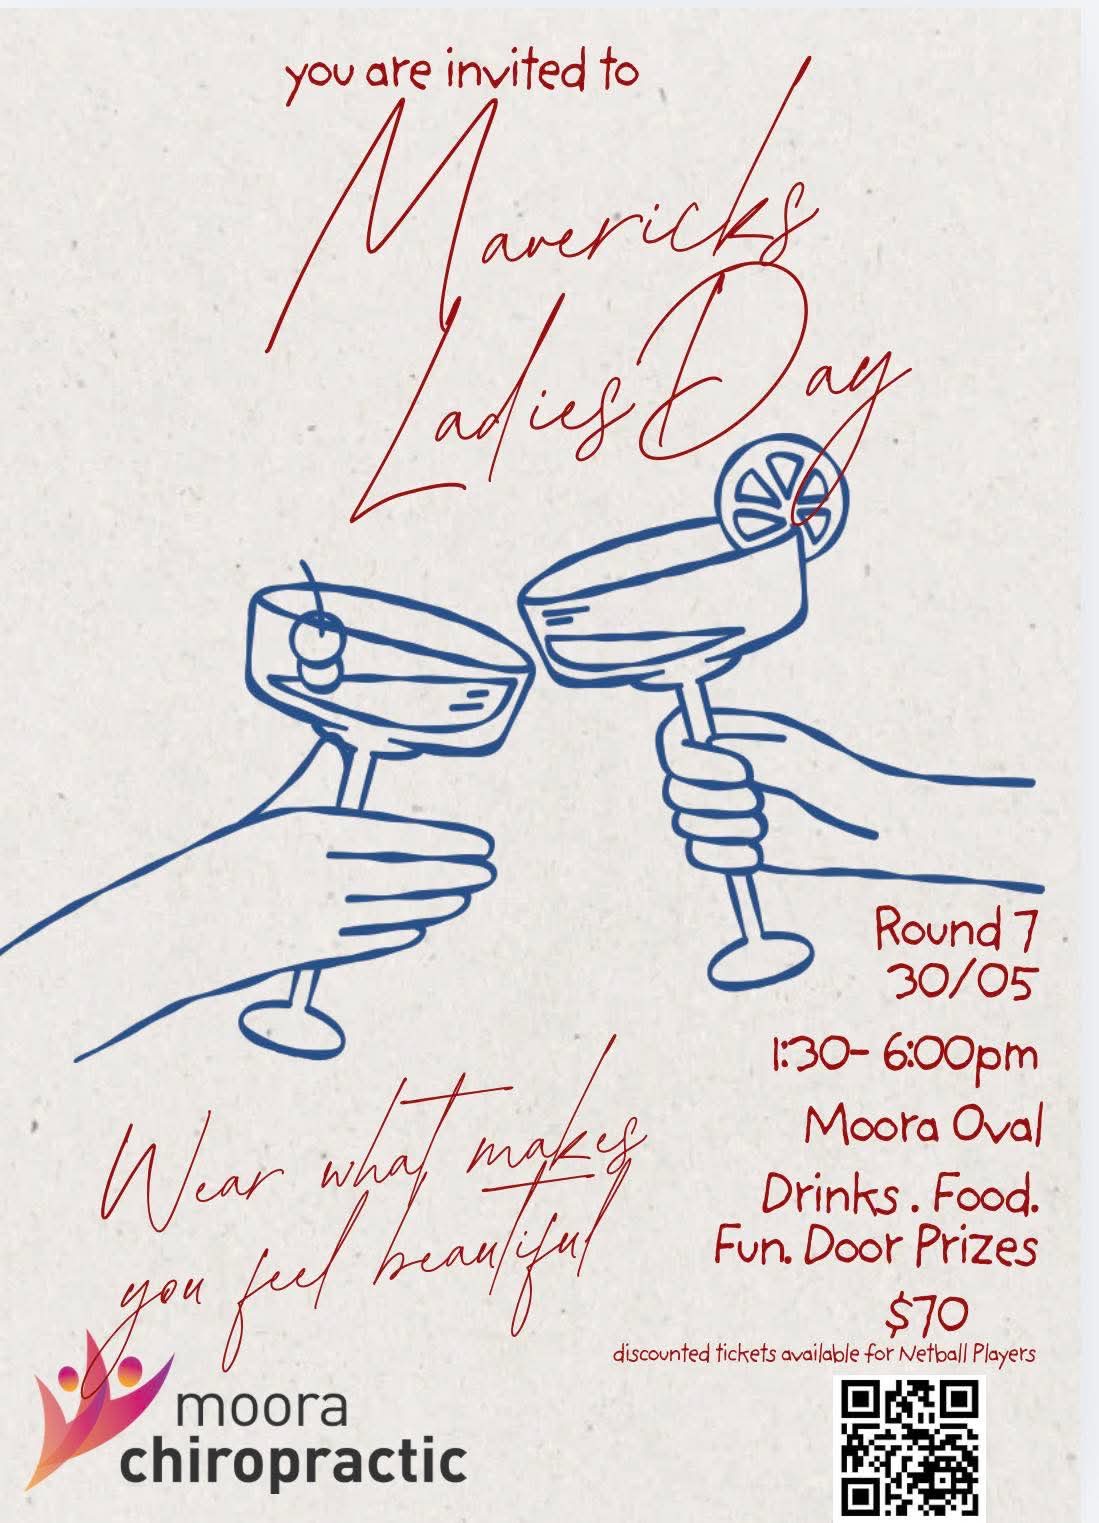 you are invited to
Mavericks
Ladies Day
Round 7
30/05
1:30- 6:00pm
Moora Oval
Drinks . Food.
Fun. Door Prizes
$70
discounted tickets available for Netball Players
Wear what makes
you feel beautiful
moora
chiropractic